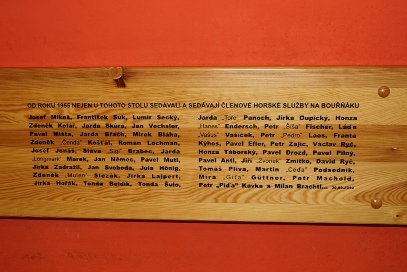 OD ROKU 1955 NEJEN U TOHOTO STOLU SEDÁVALI A SEDÁVAJÍ ČLENOVÉ HORSKÉ SLUŽBY NA BOUŘŇÁKU
Josef Mikeš, František Suk, Lumír Secký,
Zdeněk Kolář, Jarda Skúra, Jan Vechsler,
Pavel Místa, Jarda Brach, Mirek Bláha,
Zdeněk „Čenda" Košťál, Roman Lochman,
Josef Jonáš, Sláva Brabec, Jarda
„Longman" Marek, Jan Němec, Pavel Mutl,
Jirka Zadražil, Jan Svoboda, Jula Hönig,
Zdeněk Slezák, Jirka Lajpert,
Jirka Hofák, Tonda Beldík, Tonda Šulo,
Jarda „Tore" Panoch, Jirka Oupický, Honza
„Hanes" Endersch, Petr „Siša" Fischer, Láďa
„Vašus" Vašíček, Petr „Pedro" Loos, Franta
Kýhos, Pavel Efler, Petr Zajíc, Václav Ryč,
Honza Táborský, Pavel Drozd, Pavel Pilný,
Pavel Antl, Jiří „Zvonek" Zmítko, David Ryč,
Tomáš Plíva, Martin „Céďa" Podsedník,
Míra „Gifa" Güttner, Petr Macheld,
Petr „Piďa" Kavka a Milan Brachtl...